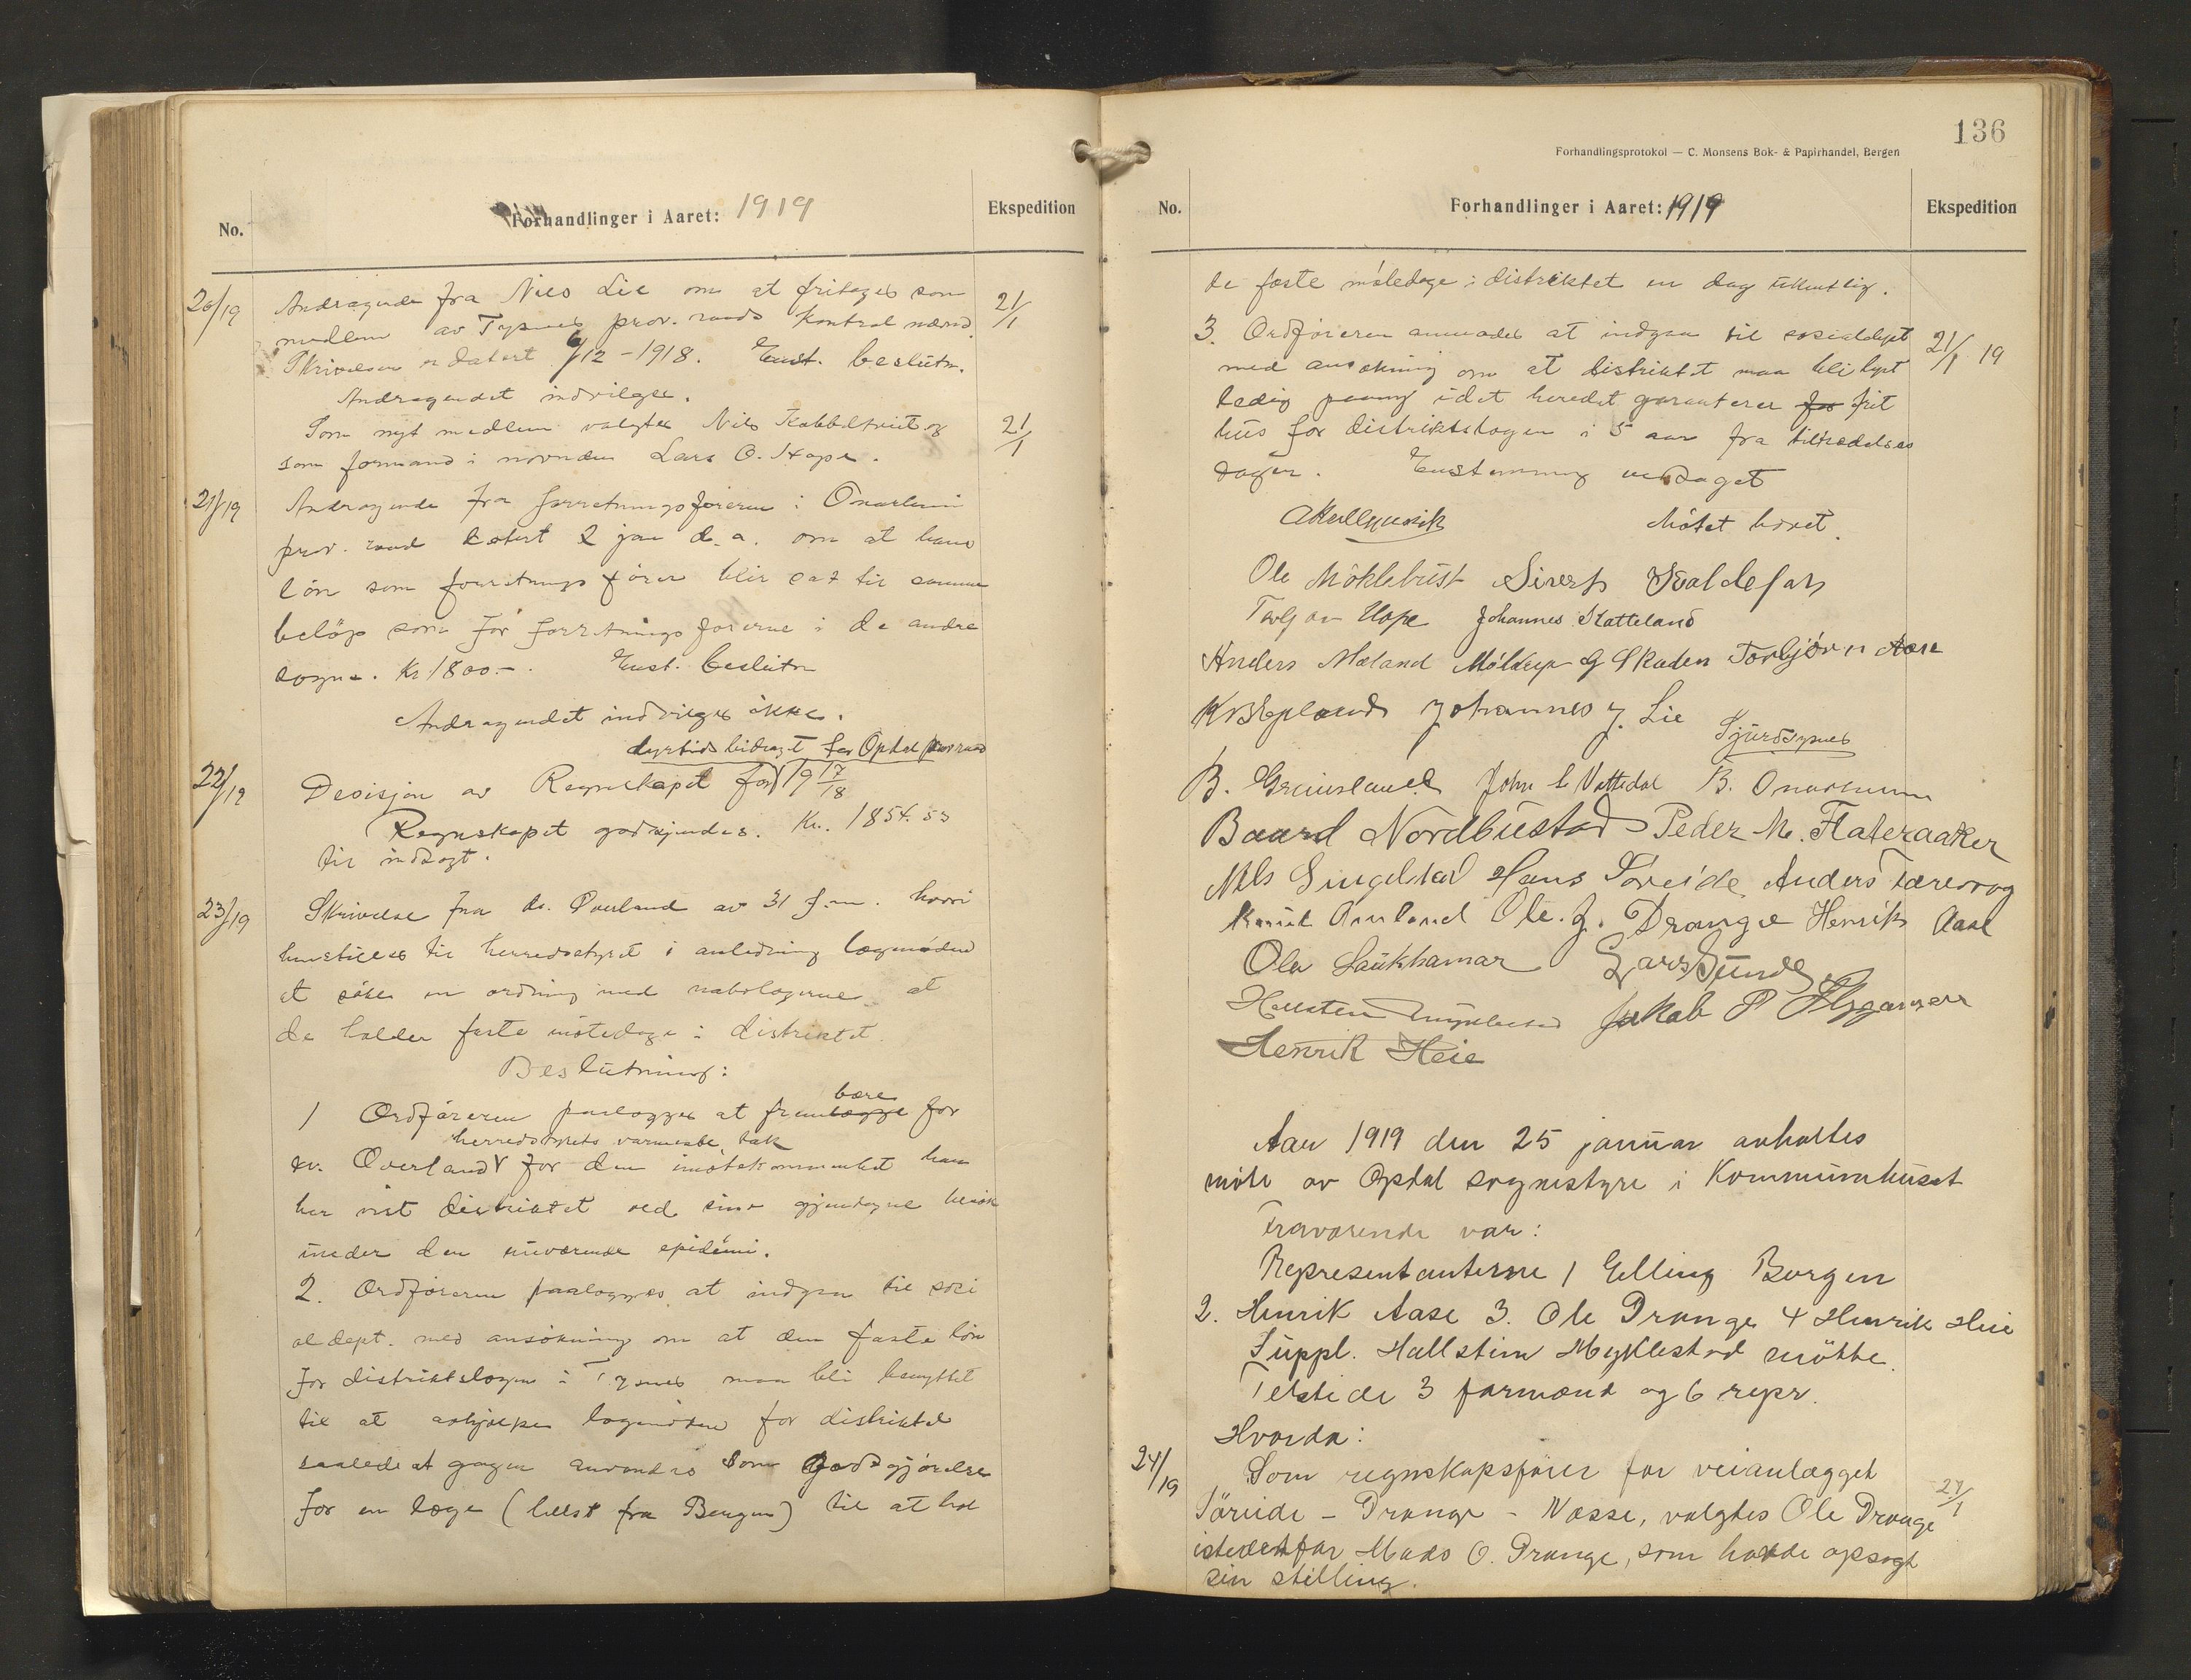 No.
Forhandlinger i Aaret: 1919
Ekspedition
20/19
Andragende fra Nils Lie om at fritages som
21/1
medlem av Tysnes prov. raads kontrol nævnd.
Skrivelsen er datert 6/12-1918. Enst. beslutn.
Andragendet indvilges.
Som nyt medlem valgtes Nils
21/1
som formand i nævnden Lars O. Hope.
21/19
Andragende fra forretningsføreren i Onarheim
prov. raad datert 2 jan d. a. om at hans
løn som forretningsfører blir sat til samme
beløp som for forretningsførerne i de andre
sogne. Kr 1800.-. Enst. beslutn
Andragendet indvilges ikke.
dyrtidsbidraget for Opdal prov raad
22/19
Decisjon av Regnskapet for 1917/18
Regnskapet godkjendes. Kr. 1854.53
til indtægt.
23/19
Skrivelse fra dr. Overland av 31 f.m. hvori
henstilles til herredsstyret i anledning lægenøden
at søke en ordning med nabolægerne at
de holder faste møtedage i distriktet.
Beslutning:
bære
1 Ordføreren paalægges at frembægge for
herredsstyrets varmeste tak
dr. Overland for den imøtekommenhet han
har vist distriktet ved sine gjentagne besøk
under den nuværende epidemi.
2. Ordføreren paalægges at indgaa til soci
aldept. med ansøkning om at den faste løn
for distriktslægen i Tysnes maa bli benyttet
til at avhjælpe lægenøden for distriktet
saaledeat gagen anvendes som Godtgjørelse
for en læge (helst fra Bergen) til at hol
136
Forhandlingsprotokol — C. Monsens Bok- & Papirhandel, Bergen
No.
Forhandlinger i Aaret: 1919
Ekspedition
de faste møtedage i distriktet en dag ukentlig.
3. Ordføreren anmodes at indgaa til socialdept
21/1 19
med ansøkning om at distriktet maa bli lyst
ledig idet heredet garanterer for frit
hus for distriktslægen i 5 aar fra tiltrædelses
dagen. Enstemmig vedtaget
Møtet hævet.
Ole Möklebust Sivert Svaldefan
Hope Johannes Skatteland
Anders Mæland G Skaden Torbjørn Aase
Johannes J. Lie
Sjurd Tysnes
B. Grimsland John L Vattedal B. Onarheim
Baard Nordbustad Peder M. Flateraaker
Nils Singelstad Hans Søreide Anders Færevaag
Knut Amland Ole. J. Drange Henrik Aase
Ola Laukhamar Lars Sunde
Jakob P
Henrik Heie
Aar 1919 den 25 januar avholtes
møte av Opdal sognestyre i Kommunehuset
Fraværende var:
Representanterne 1 Elling Borgen
2. Henrik Aase 3. Ole Drange 4 Henrik Heie
Suppl. Hallstein Myklestad møtte.
Tilstede 3 formænd og 6 repr.
Hvorda:
24/19
Som regnskapsfører for veianlægget
27/1
Søreide - Drange - Næsse, valgtes Ole Drange
istedenfor Mads O. Drange, som hadde opsagt
sin stilling.